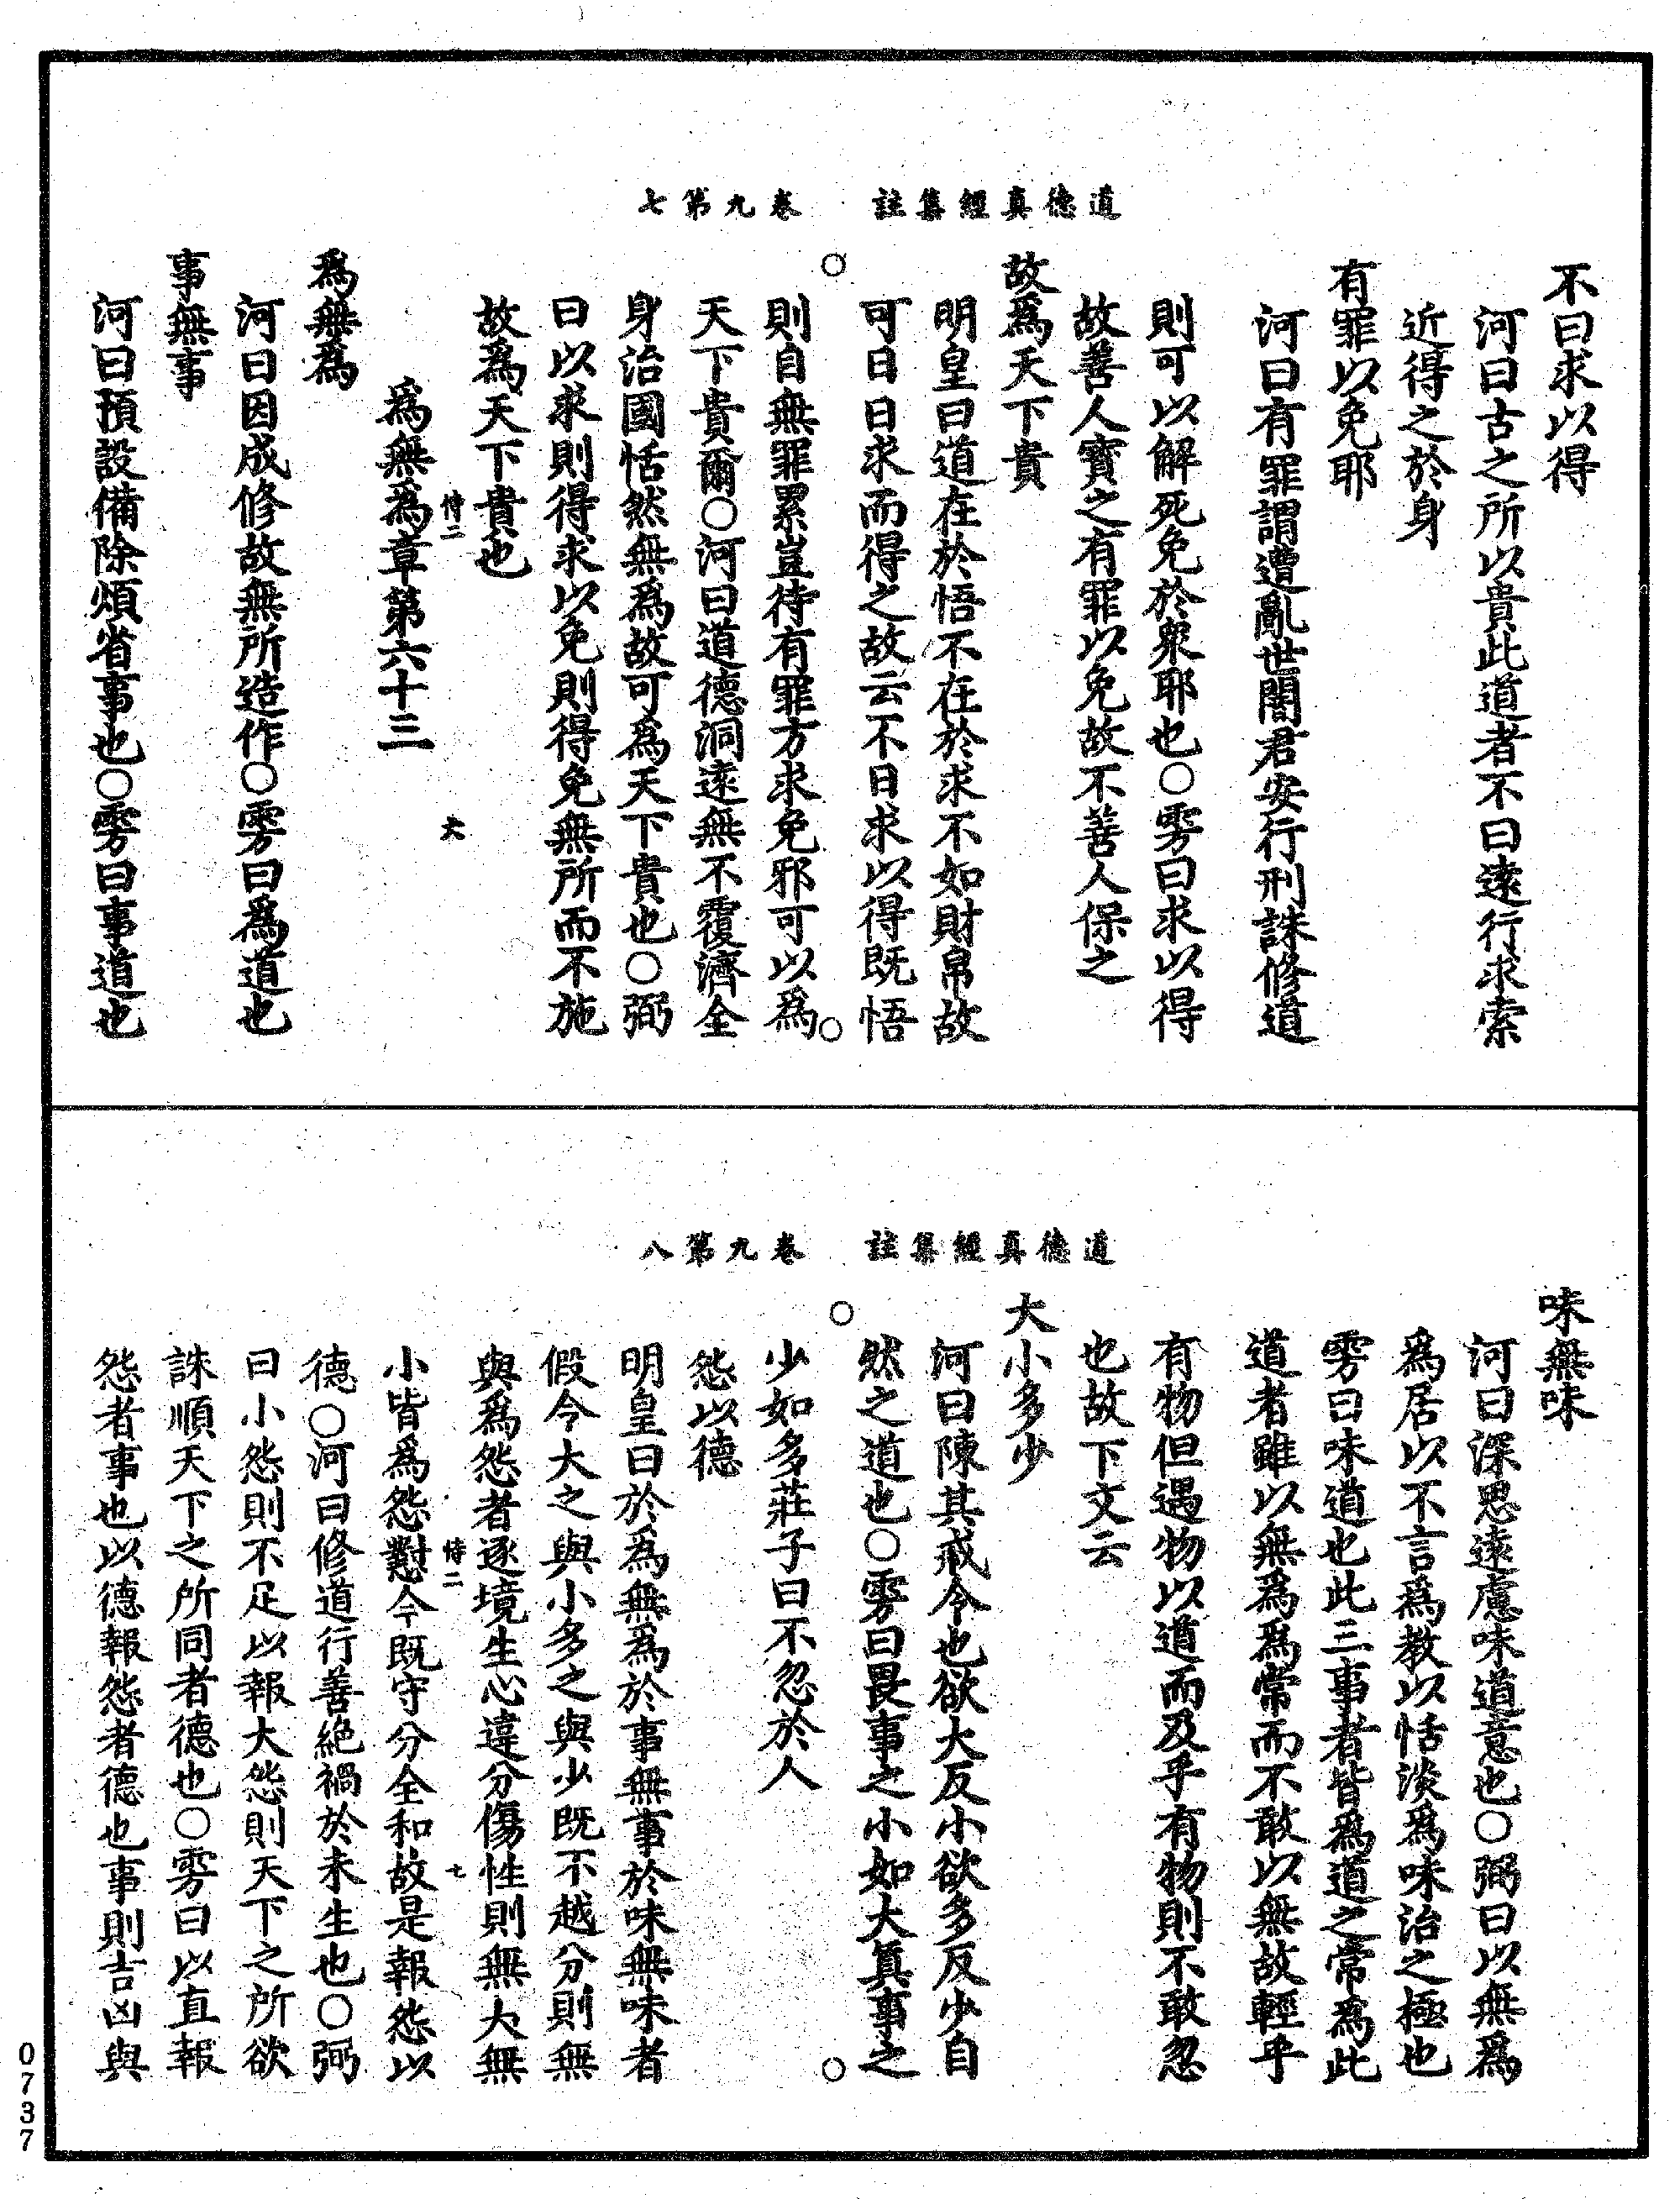 道德真經集註　卷九第七
不曰求以得
河曰古之所以貴此道者不曰遠行求索
近得之於身
有罪以免耶
河曰有罪謂遭亂世闇君妄行刑誅修道
則可以解死免於衆耶也○雱曰求以得
故善人寳之有罪以免故不善人保之
故爲天下貴
明皇曰道在於悟不在於求不如財帛故
可日日求而得之故云不日求以得既悟
則自無罪累豈待有罪方求免邪可以爲
天下貴爾○河曰道德洞遠無不覆濟全
身治國恬然無爲故可爲天下貴也○弼
曰以求則得求以免則得免無所而不施
故爲天下貴也
恃二　六
爲無爲章第六十三
爲無爲
河曰因成修故無所造作○雱曰爲道也
事無事
河曰預設備除煩省事也○雱曰事道也
道德真經集註　卷九第八
味無味
河曰深思遠慮味道意也○弼曰以無爲
爲居以不言爲教以恬淡爲味治之極也
雱曰味道也此三事者皆爲道之常爲此
道者雖以無爲爲常而不敢以無故輕乎
有物但遇物以道而及乎有物則不敢忽
也故下文云
大小多少
河曰陳其戒令也欲大反小欲多反少自
然之道也○雱曰畏事之小如大真事之
少如多莊子曰不忽於人
怨以德
明皇曰於爲無爲於事無事於味無味者
假令大之與小多之與少既不越分則無
與爲怨者逐境生心違分傷性則無大無
恃二　七
小皆爲怨懟今既守分全和故是報怨以
德○河曰修道行善絶禍於未生也○弼
曰小怨則不足以報大怨則天下之所欲
誅順天下之所同者德也○雱曰以直報
怨者事也以德報怨者德也事則吉凶與
0737